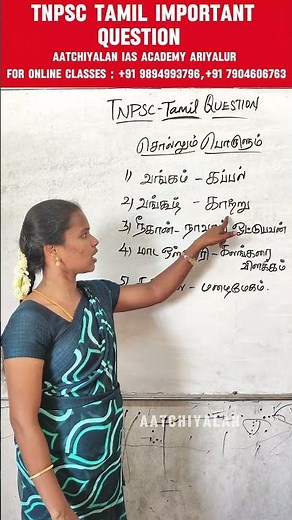 TNPSC TAMIL IMPORTANT
QUESTION
AATCHIYALAN IAS ACADEMY ARIYALUR
FOR ONLINE CLASSES : +91 9894993796,+91 7904606763
TNPSC-Tamil QUESTION
சொல்லும் பொருளும்
1) வங்கம் - கப்பல்
2) வங்கூழ் - காற்று
3) நீகான் - ஓட்டுபவன்
4) மாட - கலங்கரை
விளக்கம்
5) - மழைமேகம்.
AATCHIYALAN